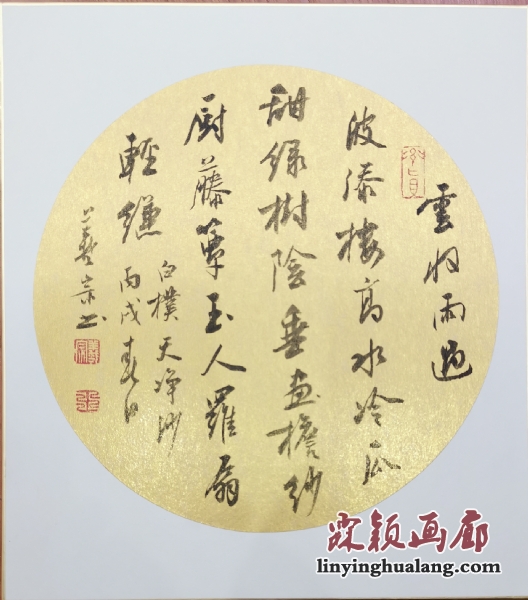 雲收雨過
波添樓高水冷瓜
甜绿樹陰垂画檐紗
厨藤簟玉人羅扇
輕縑
白樸天净沙
丙戌春日
宗书
霖颖画廊
linyinghualang.com